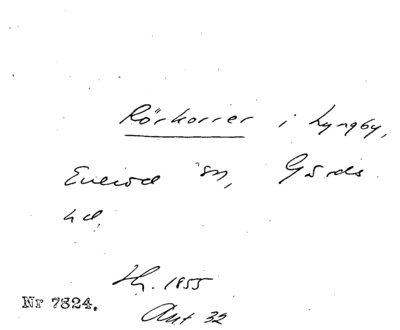 Rörkorrer i Lyngby,
Everöd sn, Gärds
hd.
1855
Nr 7324.
Ant 32